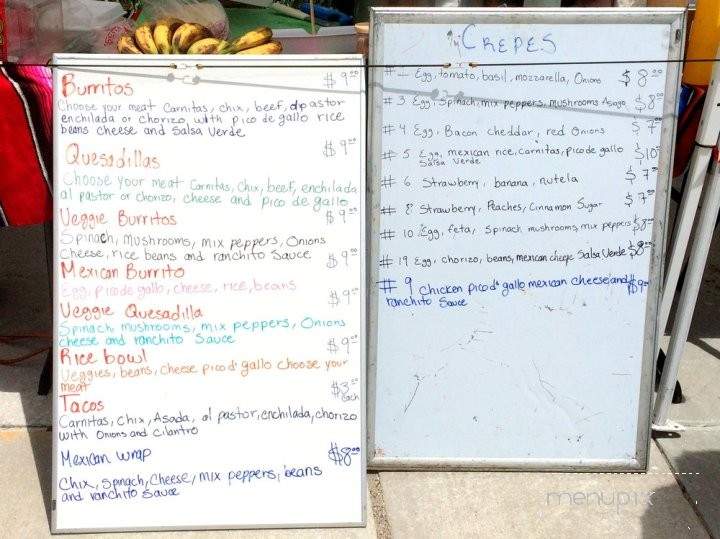 Burritos $9.00
Choose your meat Carnitas, chix, beef, al pastor
enchilada or chorizo, with pico de gallo rice
beans cheese and Salsa Verde
Quesadillas $9.00
Choose your meat Carnitas, Chix, beef, enchilada
al pastor or chorizo, cheese and pico de gallo
Veggie Burritos $9.00
Spinach, mushrooms, mix peppers, Onions
Cheese, rice beans and ranchito Sauce
Mexican Burrito $9.00
Egg, pico de gallo, cheese, rice, beans
Veggie Quesadilla $9.00
Spinach, mushrooms, mix peppers, Onions
cheese and ranchito Sauce
Rice bowl $9.00
Veggies, beans, cheese pico d' gallo choose your
meat
Tacos $3.00 each
Carnitas, chix, Asada, al pastor, enchilada, chorizo
with Onions and Cilantro
Mexican wrap $8.00
Chix, Spinach, Cheese, mix peppers, beans
and ranchito Sauce
Crepes
#1 Egg, tomato, basil, mozzarella, Onions $8.00
#3 Egg, Spinach, mix peppers, mushrooms Asiago $8.00
#4 Egg, Bacon cheddar, red Onions $7.00
#5 Egg, mexican rice, carnitas, pico de gallo $10
Salsa Verde
#6 Strawberry, banana, nutela $7.00
#8 Strawberry, Peaches, Cinnamon Sugar $7.00
#10 Egg, feta, Spinach mushrooms, mix peppers $8.00
#19 Egg, chorizo, beans, mexican cheese Salsa Verde $8.00
#9 Chicken pico d' gallo mexican cheese and $9.00
ranchito Sauce
menupix